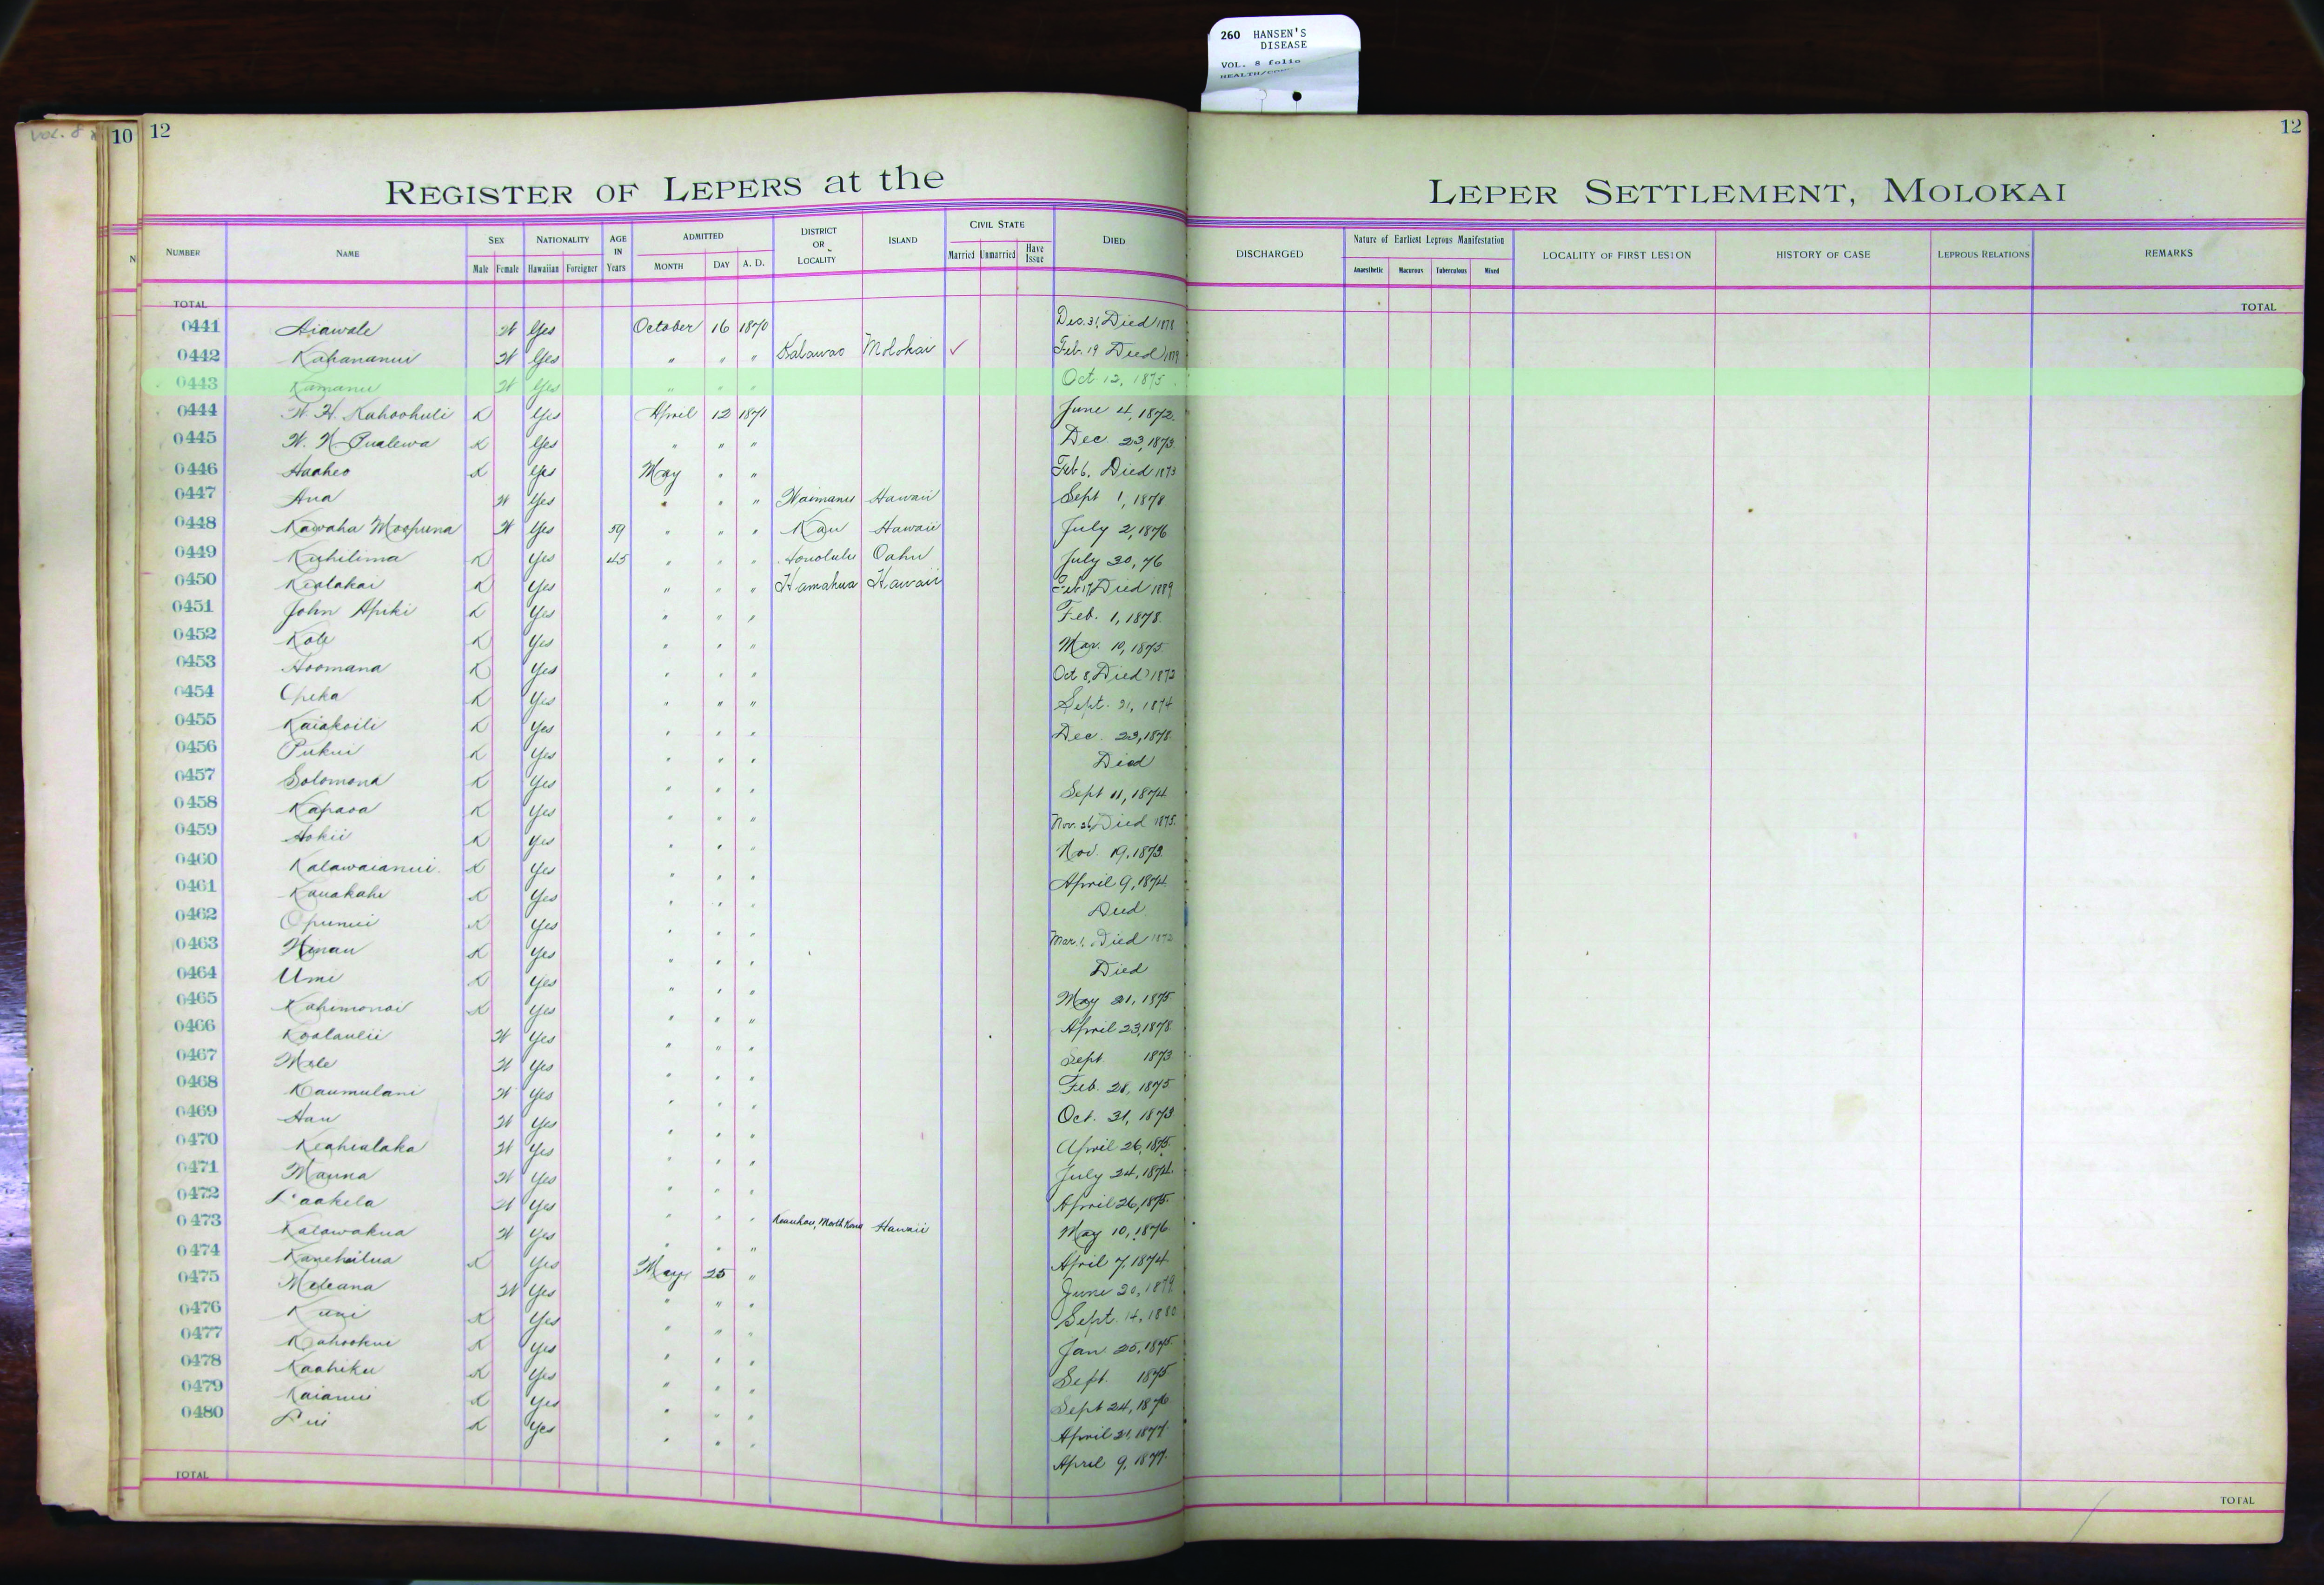 260 HANSEN'S
DISEASE
VOL. 8 folio
VOL. 8
10 12 12
REGISTER OF LEPERS at the LEPER SETTLEMENT, MOLOKAI
NUMBER NAME SEX NATIONALITY AGE IN Years ADMITTED DISTRICT OR LOCALITY ISLAND CIVIL STATE DIED DISCHARGED Nature of Earliest Leprous Manifestation LOCALITY OF FIRST LESION HISTORY OF CASE LEPROUS RELATIONS REMARKS
Male Female Hawaiian Foreigner MONTH DAY A. D. Married Unmarried Have Issue Anaesthetic Macurous Tuberculous Mixed
TOTAL TOTAL
0441 Aiawale W Yes October 16 1870 Dec. 31, Died 1878
0442 Kahananui W Yes " " " Kalawao Molokai ✓ Feb. 19 Died 1879
0443 Kamanu W Yes " " " Oct 12, 1875
0444 W. H. Kahoohuli K Yes April 12 1871 June 4, 1872
0445 W. N. Pualewa K Yes " " " Dec 23, 1873
0446 Haaheo K Yes May " " Feb 6, Died 1873
0447 Ana W Yes " " " Waimanu Hawaii Sept 1, 1878
0448 Kawaha Moopuna W Yes 59 " " " Kau Hawaii July 2, 1876
0449 Kuhilima K Yes 45 " " " Honolulu Oahu July 30, 76
0450 Kealakai K Yes " " " Hamakua Hawaii Feb 17, Died 1889
0451 John Apiki K Yes " " " Feb. 1, 1878
0452 Kole K Yes " " " Mar. 10, 1875
0453 Hoomana K Yes " " " Oct 8, Died 1873
0454 Opeka K Yes " " " Sept. 21, 1874
0455 Kaiakoili K Yes " " " Dec. 23, 1878
0456 Pukui K Yes " " " Died
0457 Solomona K Yes " " " Sept 11, 1874
0458 Kapaoa K Yes " " " Nov. 26, Died 1875
0459 Hokii K Yes " " " Nov. 19, 1873
0460 Kalawaianui K Yes " " " April 9, 1874
0461 Kauakahi K Yes " " " Died
0462 Opunui K Yes " " " Mar. 1, Died 1873
0463 Hinau K Yes " " " Died
0464 Umi K Yes " " " May 21, 1875
0465 Kahimonoi K Yes " " " April 23, 1878
0466 Koolaulii W Yes " " " Sept 1873
0467 Mele W Yes " " " Feb. 28, 1875
0468 Kaumulani W Yes " " " Oct. 31, 1873
0469 Hau W Yes " " " April 26, 1875
0470 Keahialaka W Yes " " " July 24, 1874
0471 Mauna W Yes " " " April 26, 1875
0472 Laakela W Yes " " " Keauhou, North Kona Hawaii May 10, 1876
0473 Kalawakua W Yes " " " April 7, 1874
0474 Kanehailua K Yes May 25 " June 20, 1879
0475 Meleana W Yes " " " Sept. 14, 1880
0476 Kuni K Yes " " " Jan 25, 1875
0477 Kahookui K Yes " " " Sept. 1875
0478 Kaahiku K Yes " " " Sept 24, 1876
0479 Kaianui K Yes " " " April 21, 1877
0480 Lui K Yes " " " April 9, 1877
TOTAL TOTAL